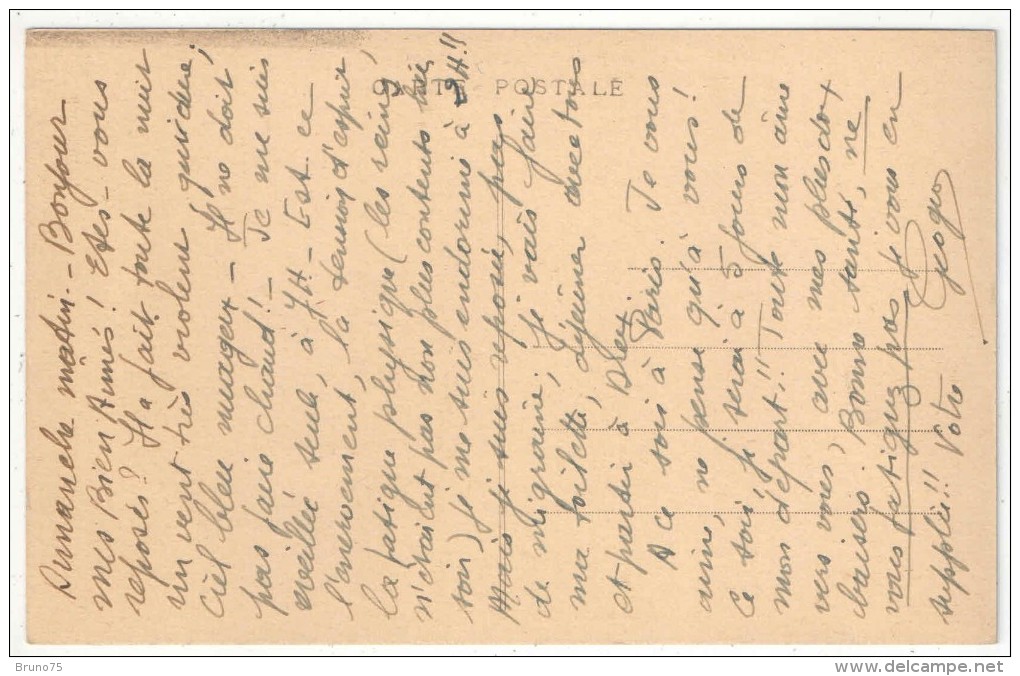 CARTE POSTALE
Dimanche matin. - Bonjour
mes Bien Aimés! Etes-vous
reposés? Il a fait toute la nuit
un vent très violent, aujourd'hui,
ciel bleu nuageux - Il ne doit
pas faire chaud! - Je me suis
éveillée seule, à 7H - Est ce
l'énervement, la tension d'esprit,
la fatigue physique (les reins
n'étaient pas non plus contents hier
soir) je me suis endormie à 2H!!
Mais je suis reposée, pas
de migraine, je vais faire
ma toilette, déjeuner avec tous
et partir à
A ce soir à Paris. Je vous
aime, ne pense qu'à vous!
Ce soir je serai à 5 jours de
mon départ!! Toute mon âme
vers vous, avec mes plus doux
baisers. Bonne santé, ne
vous fatiguez pas je vous en
supplie!! Votre
Bruno75
www.delcampe.net